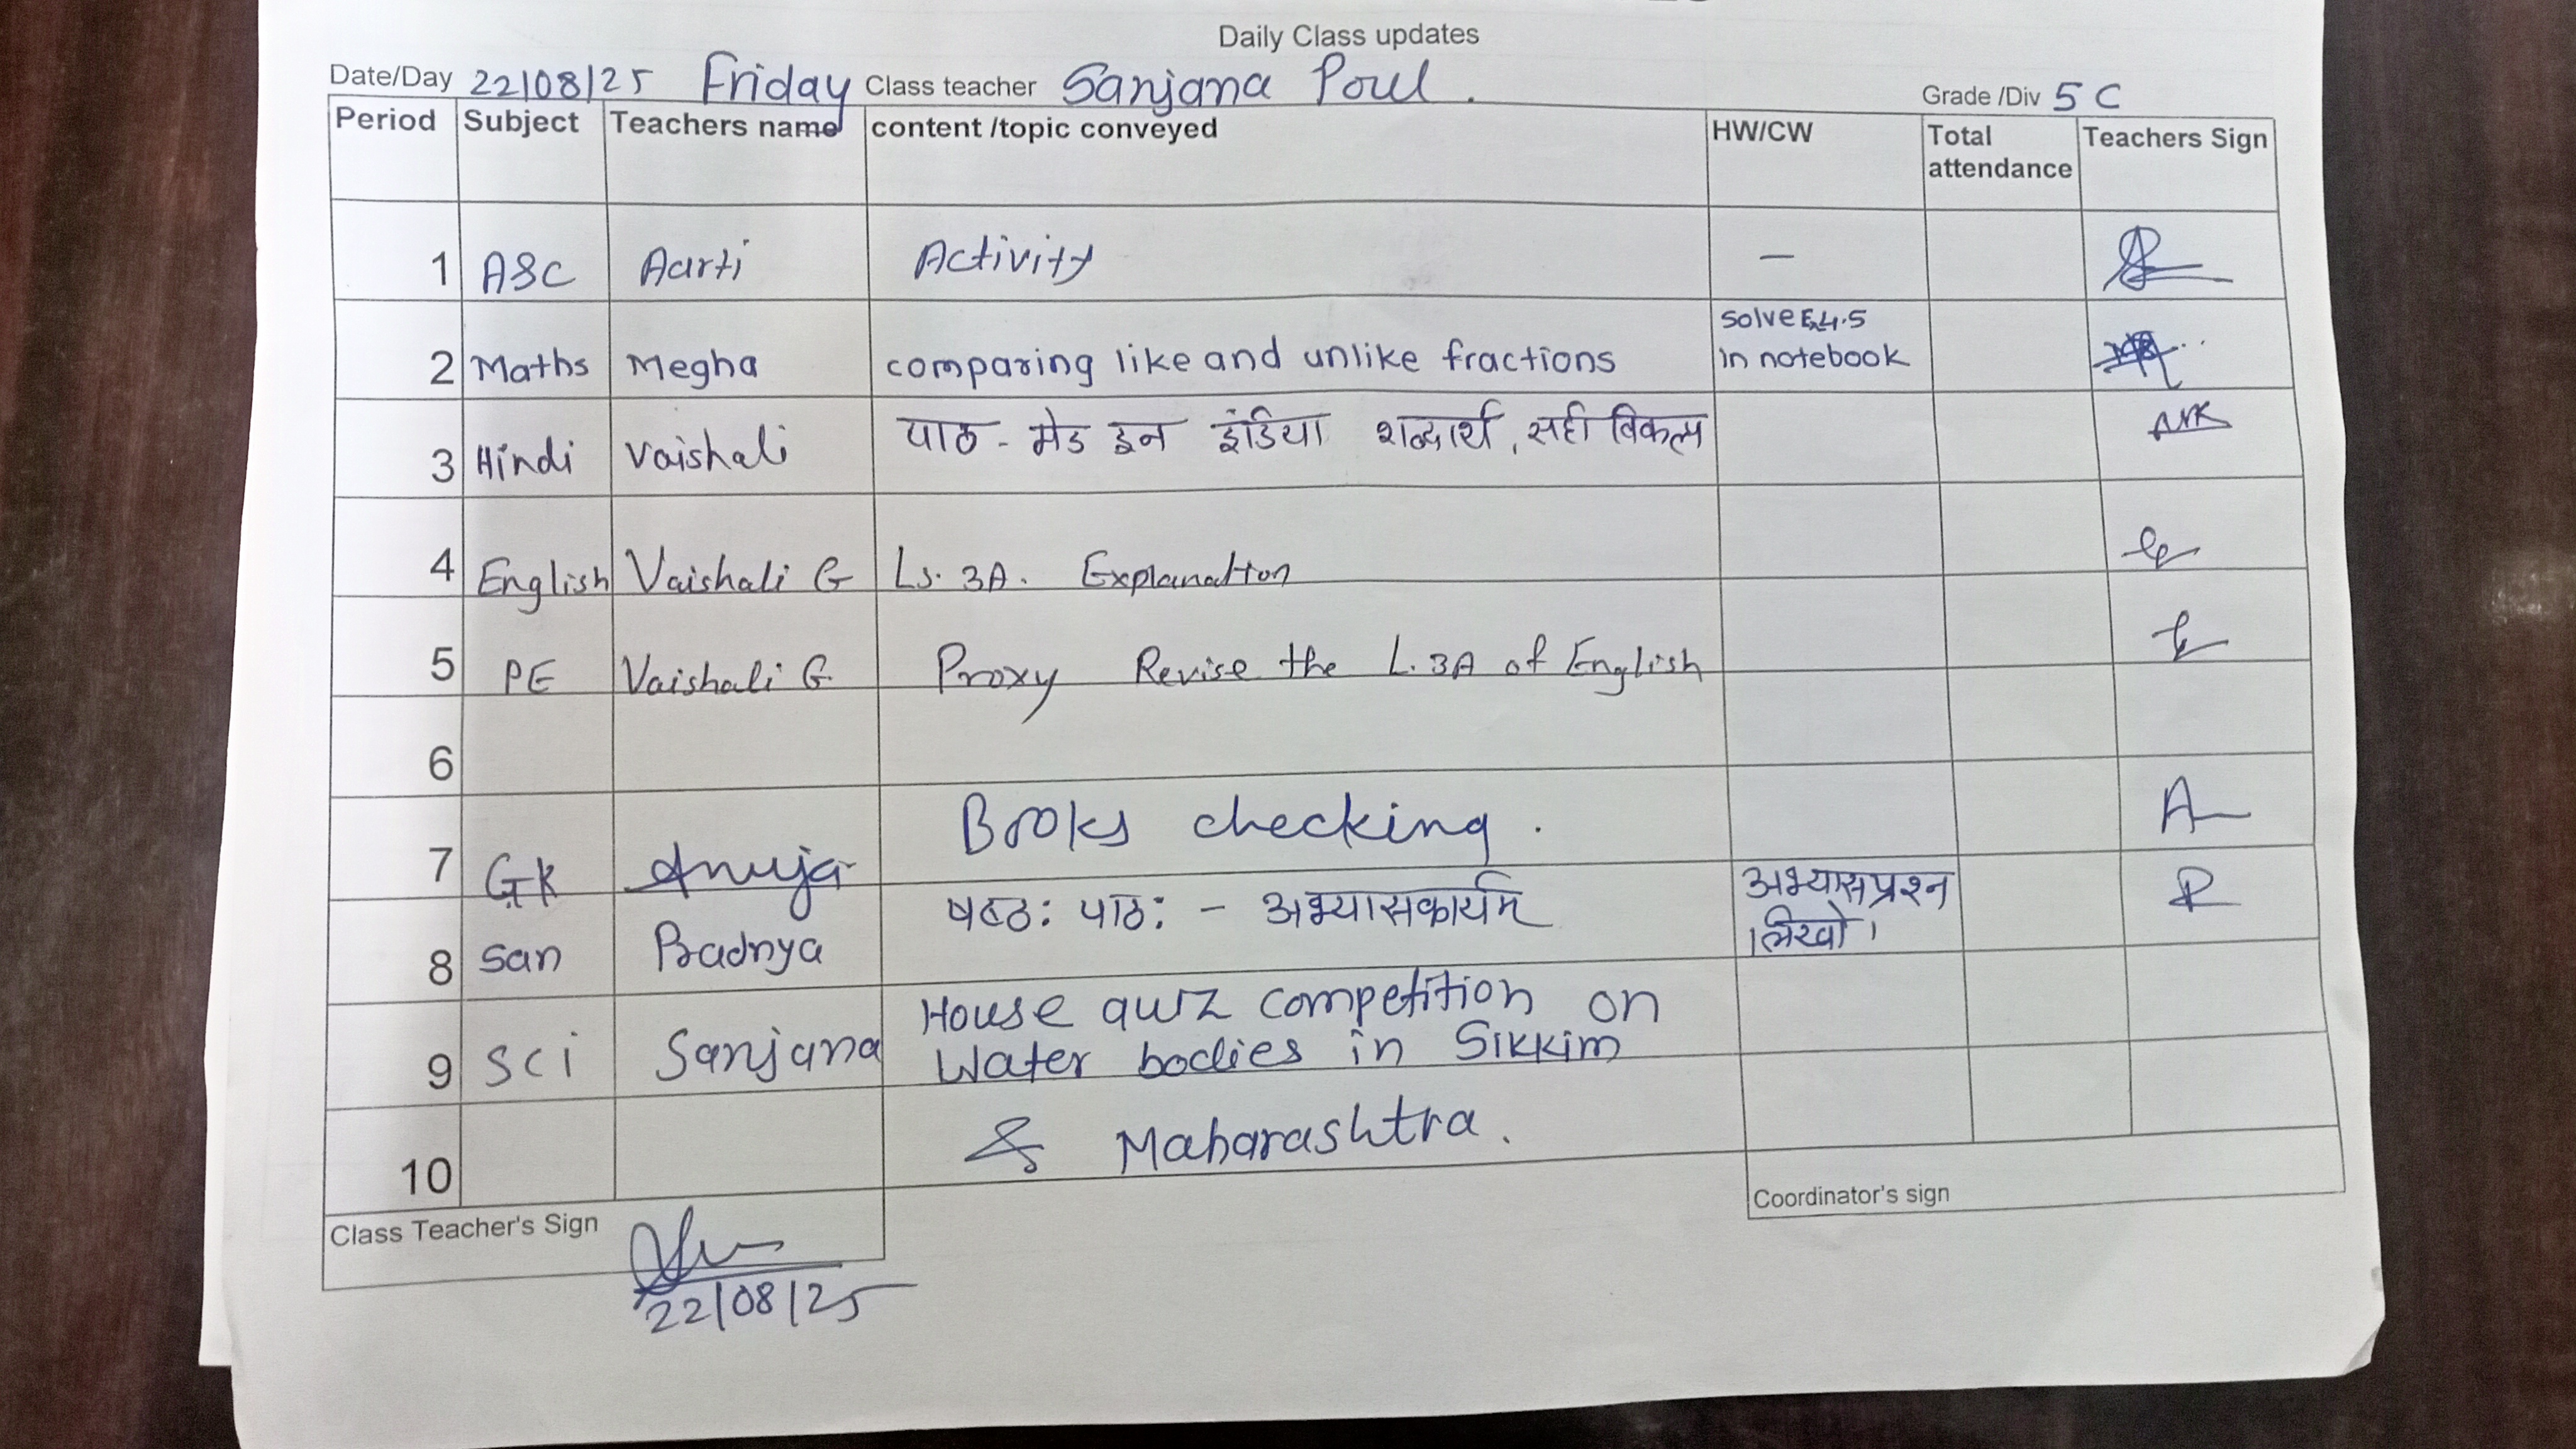 Daily Class updates
Date/Day 22/08/25 Friday Class teacher Sanjana Poul. Grade /Div 5 C
Period Subject Teachers name content /topic conveyed HW/CW Total attendance Teachers Sign
1 ASC Aarti Activity —
2 Maths Megha comparing like and unlike fractions solve Ex 4.5 in notebook
3 Hindi Vaishali पाठ - मेड इन इंडिया शब्दार्थ, सही विकल्प
4 English Vaishali G Ls. 3A. Explanation
5 PE Vaishali G. Proxy Revise the L. 3A of English
6
7 GK Anuja Books checking.
8 San Pradnya षष्ठः पाठः - अभ्यासकार्यम् अभ्यासप्रश्न लिखो।
9 Sci Sanjana House quiz competition on
Water bodies in Sikkim
10 & Maharashtra.
Class Teacher's Sign Coordinator's sign
22/08/25